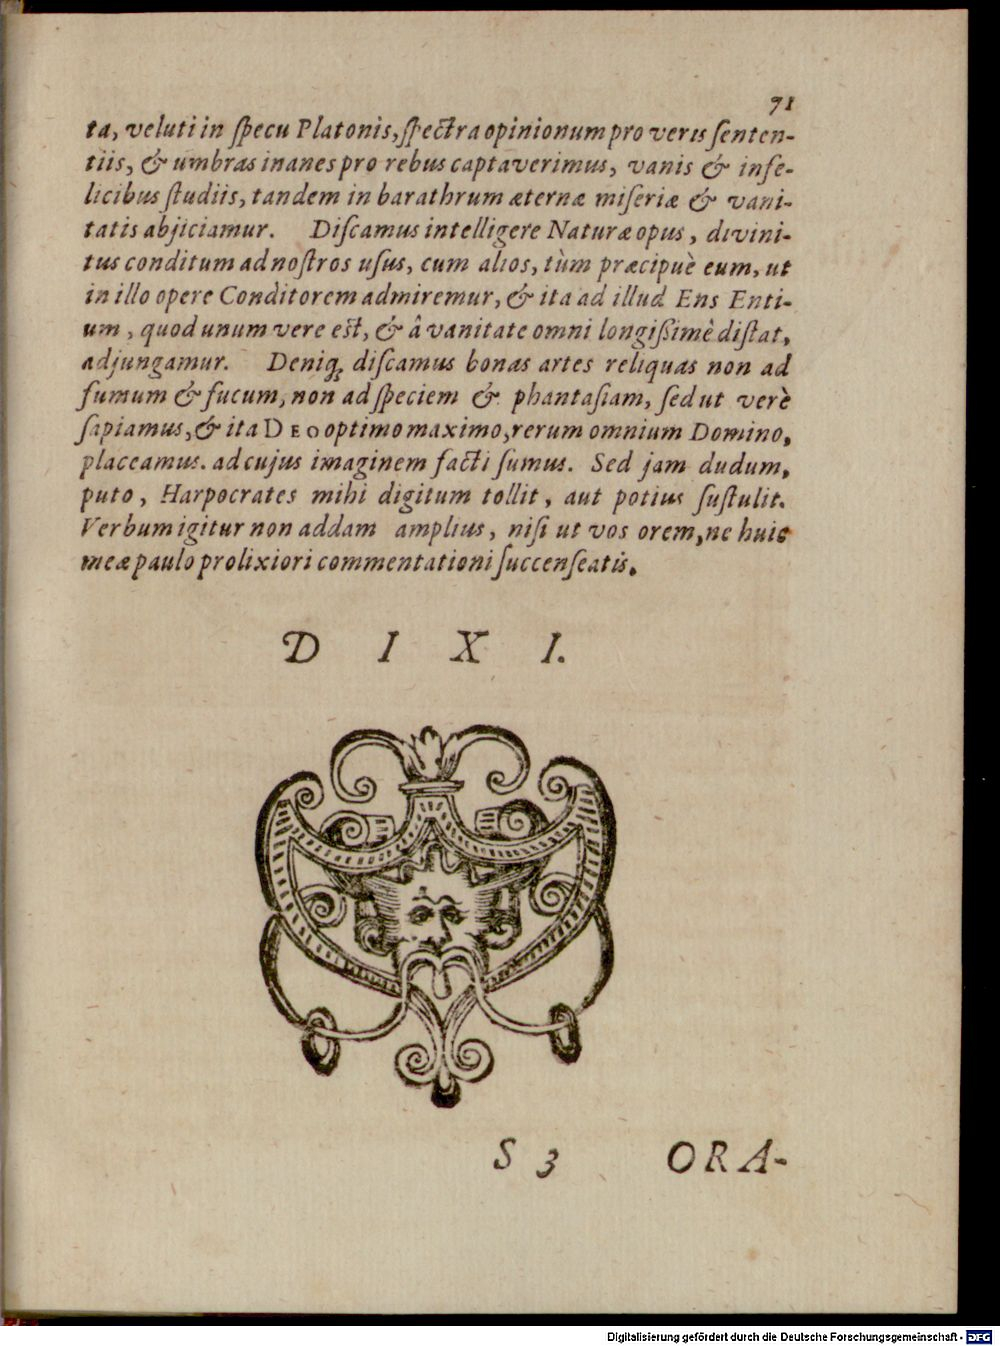 71
ta, veluti in ſpecu Platonis, ſpectra opinionum pro veris ſenten-
tiis, & umbras inanes pro rebus captaverimus, vanis & infe-
licibus ſtudiis, tandem in barathrum æternæ miſeriæ & vani-
tatis abjiciamur. Diſcamus intelligere Naturæ opus, divini-
tus conditum ad noſtros uſus, cum alios, tùm præcipuè eum, ut
in illo opere Conditorem admiremur, & ita ad illud Ens Enti-
um, quod unum vere eſt, & â vanitate omni longiſsimè diſtat,
adjungamur. Deniq; diſcamus bonas artes reliquas non ad
fumum & fucum, non ad ſpeciem & phantaſiam, ſed ut verè
ſapiamus, & ita DEO optimo maximo, rerum omnium Domino,
placeamus. ad cujus imaginem facti ſumus. Sed jam dudum,
puto, Harpocrates mihi digitum tollit, aut potius ſuſtulit.
Verbum igitur non addam amplius, niſi ut vos orem, ne huic
meæ paulo prolixiori commentationi ſuccenſeatis.
D I X I.
S 3 ORA-
Digitalisierung gefördert durch die Deutsche Forschungsgemeinschaft - DFG